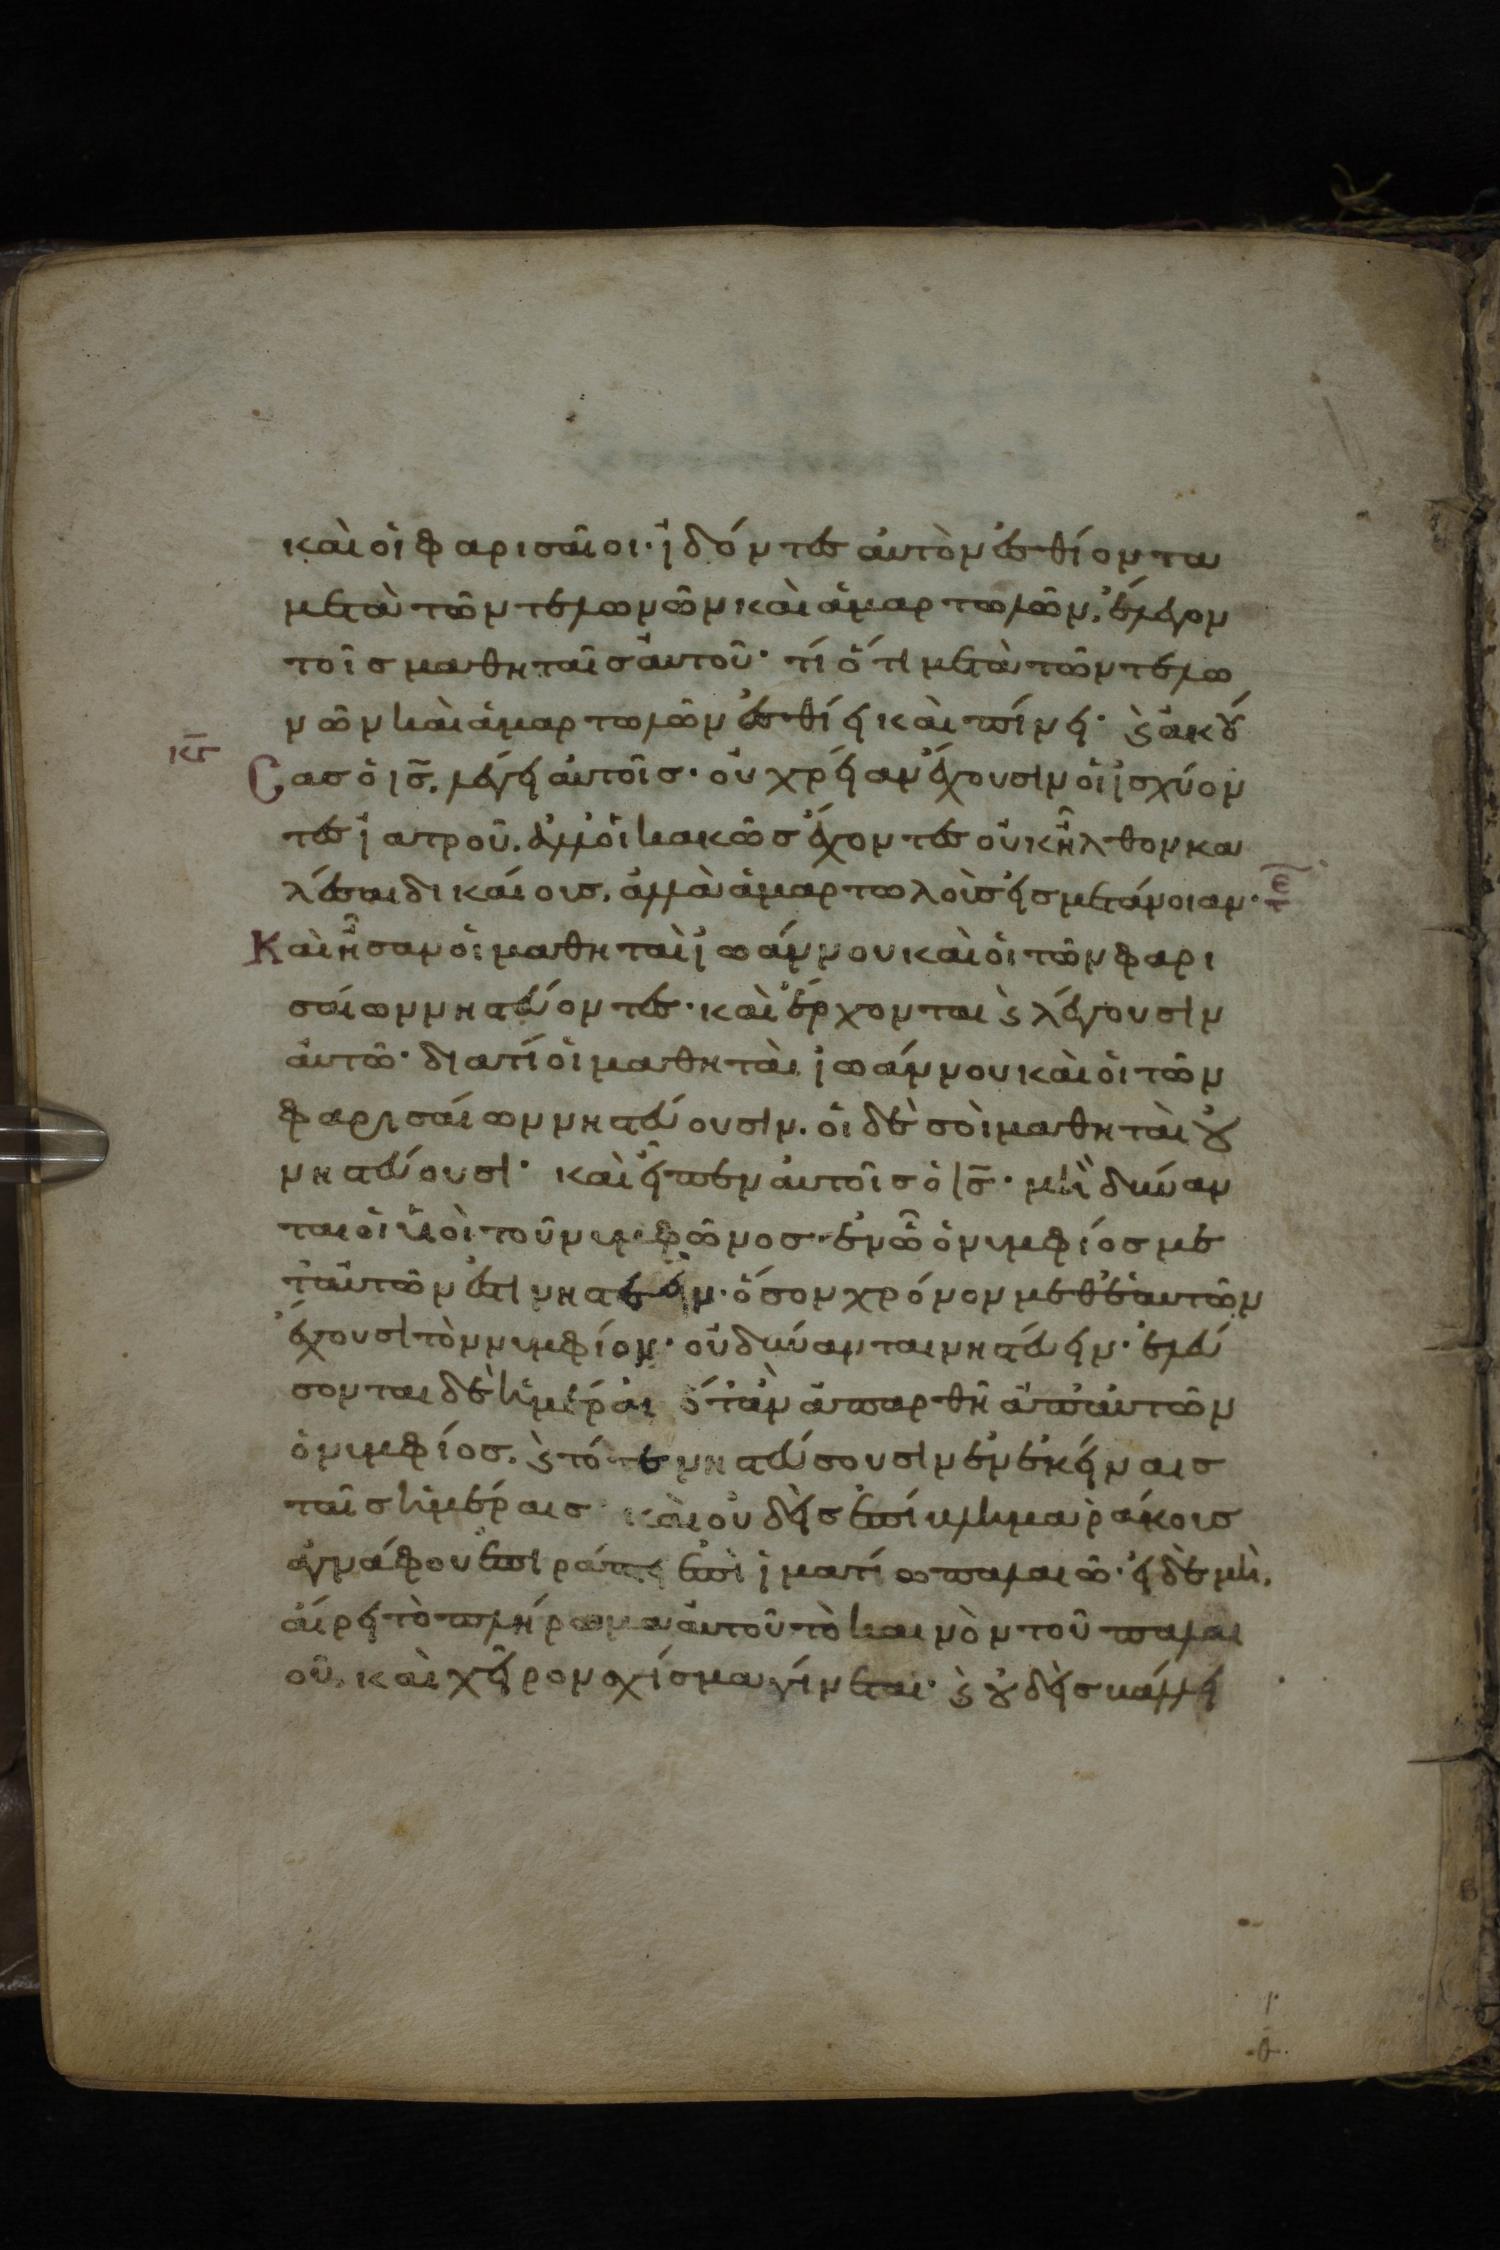 καὶ οἱ φαρισαῖοι· ἰδόντες αὐτὸν ἐσθίοντα
μετὰ τῶν τελωνῶν καὶ ἁμαρτωλῶν, ἔλεγον
τοῖς μαθηταῖς αὐτοῦ· τί ὅτι μετὰ τῶν τελω
νῶν καὶ ἁμαρτωλῶν ἐσθίει καὶ πίνει· ϗ ἀκού
κϛ
σας ὁ ις̅, λέγει αὐτοῖς· οὐ χρείαν ἔχουσιν οἱ ἰσχύον
τες ἰατροῦ, ἀλλ' οἱ κακῶς ἔχοντες οὐκ ἦλθον κα
λέσαι δικαίους, ἀλλὰ ἁμαρτωλοὺς εἰς μετάνοιαν·
Καὶ ἦσαν οἱ μαθηταὶ ἰωάννου καὶ οἱ τῶν φαρι
σαίων νηστεύοντες· καὶ ἔρχονται ϗ λέγουσιν
αὐτῶ· διατί οἱ μαθηταὶ ἰωάννου καὶ οἱ τῶν
φαρισαίων νηστεύουσιν. οἱ δὲ σοὶ μαθηταὶ οὐ
νηστεύουσι· καὶ εἶπεν αὐτοῖς ὁ ις̅· μὴ δύναν
ται οἱ υἱοὶ τοῦ νυμφῶνος· ἐν ὧ ὁ νυμφίος με
τ' αὐτῶν ἐστι νηστεύειν· ὅσον χρόνον μεθ' ἑαυτῶν
ἔχουσι τὸν νυμφίον· οὐ δύνανται νηστεύειν· ἐλεύ
σονται δὲ ἡμέραι ὅταν ἀπαρθῆ ἀπ' αὐτῶν
ὁ νυμφίος, ϗ τότε νηστεύσουσιν ἐν ἐκείναις
ταῖς ἡμέραις· καὶ οὐδεὶς ἐπίβλημα ῥάκους
ἀγνάφου ἐπιράπτει ἐπὶ ἱματίω παλαιῶ· εἰ δὲ μὴ,
αἴρει τὸ πλήρωμα αὐτοῦ τὸ καινὸν τοῦ παλαι
οῦ, καὶ χεῖρον σχίσμα γίνεται· ϗ οὐδεὶς βάλλει